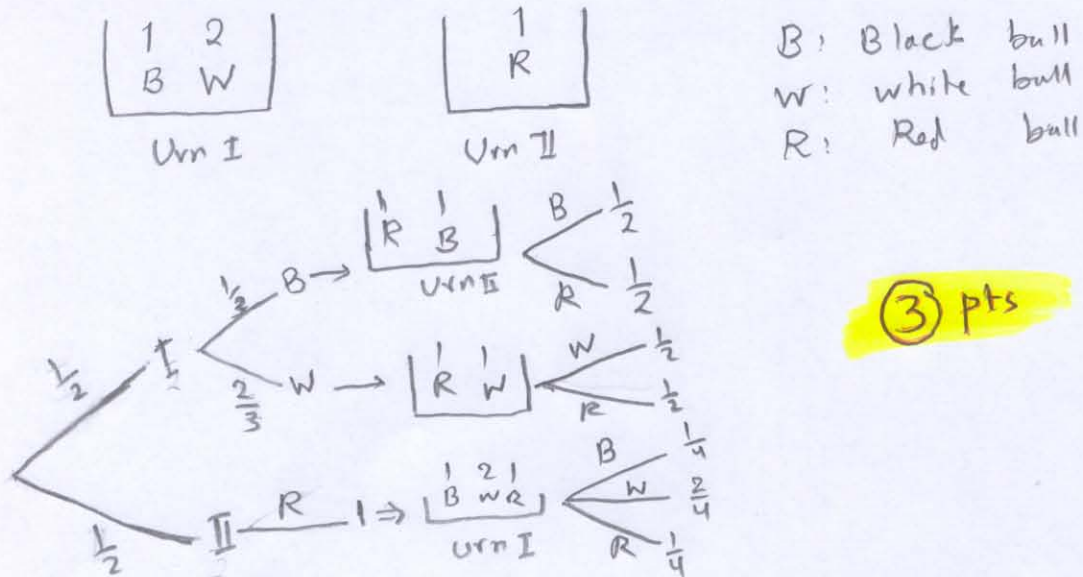 1 2
B W
Urn I
1
R
Urn II
B: Black ball
W: white ball
R: Red ball
1/2
I
1/3
B →
1 1
R B
Urn II
B 1/2
R 1/2
2/3
W →
1 1
R W
W 1/2
R 1/2
③ pts
1/2
II
R
1 ⇒
1 2 1
B W R
Urn I
B 1/4
W 2/4
R 1/4